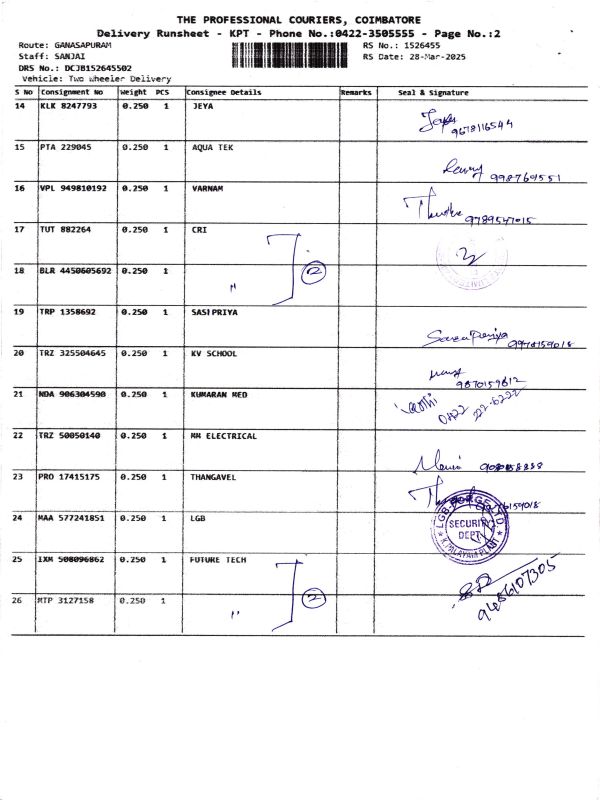 THE PROFESSIONAL COURIERS, COIMBATORE
Delivery Runsheet - KPT - Phone No.:0422-3505555 - Page No.:2
Route: GANASAPURAM RS No.: 1526455
Staff: SANJAI RS Date: 28-Mar-2025
DRS No.: DCJB152645502
Vehicle: Two Wheeler Delivery
S No Consignment No Weight PCS Consignee Details Remarks Seal & Signature
14 KLK 8247793 0.250 1 JEYA
9678116544
15 PTA 229045 0.250 1 AQUA TEK
998769551
16 VPL 949810192 0.250 1 VARNAM
9789547015
17 TUT 882264 0.250 1 CRI
18 BLR 4450605692 0.250 1 " 2
19 TRP 1358692 0.250 1 SASIPRIYA
9978159018
20 TRZ 325504645 0.250 1 KV SCHOOL
9870159812
21 NDA 906304590 0.250 1 KUMARAN MED
0422 22-6222
22 TRZ 50050140 0.250 1 MM ELECTRICAL
23 PRO 17415175 0.250 1 THANGAVEL
24 MAA 577241851 0.250 1 LGB
LGB-FORGE LTD.
SECURITY
DEPT
K.PALAYAM PLANT
25 IXM 508096862 0.250 1 FUTURE TECH
26 MTP 3127158 0.250 1 " 2
9486107305